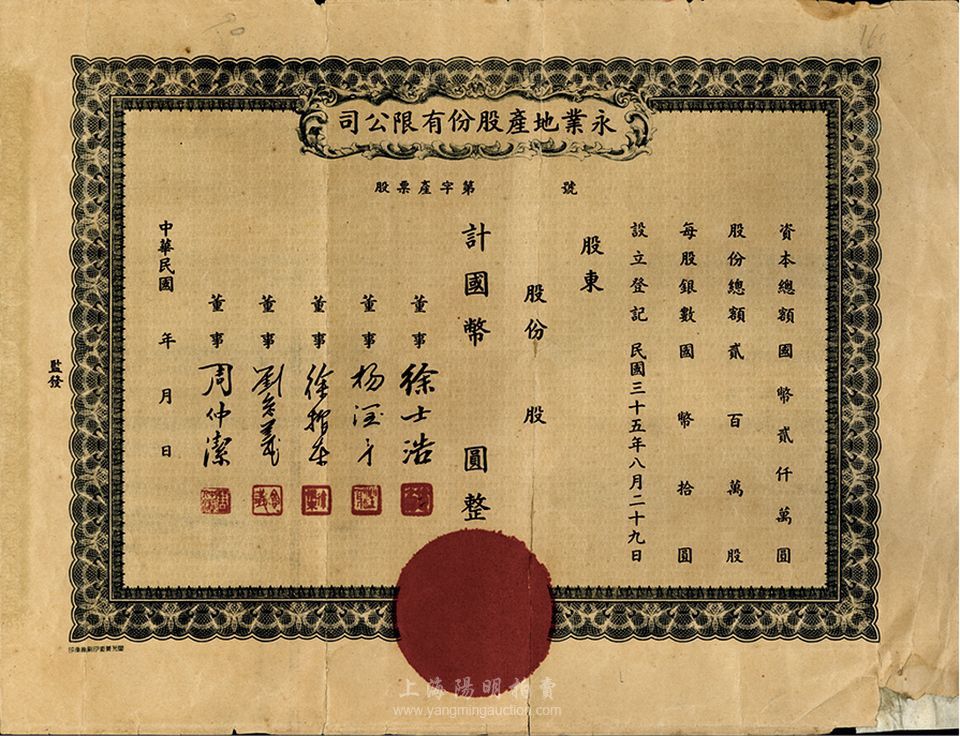 永業地產股份有限公司
股票產字第 號
資本總額國幣貳仟萬圓
股份總額貳百萬股
每股銀數國幣拾圓
設立登記民國三十五年八月二十九日
股東
股份 股
計國幣 圓整
董事 徐士浩
董事
董事
董事
董事 周仲潔
中華民國 年 月 日
監發
上海陽明拍賣
www.yangmingauction.com